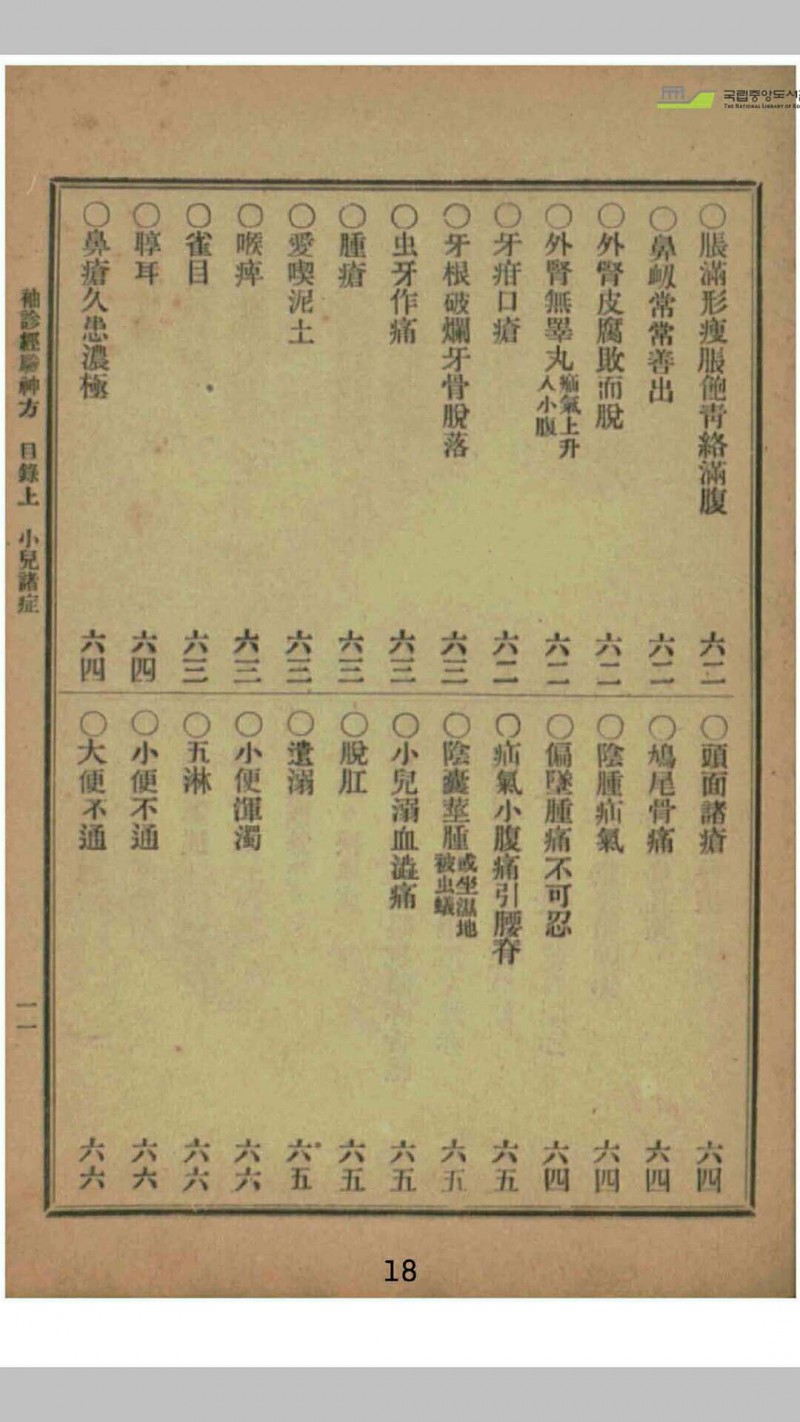 국립중앙도서
THE NATIONAL LIBRARY OF KO
〇脹滿形瘦脹飽靑絡滿腹 六二
〇鼻衄常常善出 六二
〇外腎皮腐敗而脫 六二
〇外腎無睾丸 疝氣上升入小腹 六二
〇牙疳口瘡 六二
〇牙根破爛牙骨脫落 六三
〇虫牙作痛 六三
〇腫瘡 六三
〇愛喫泥土 六三
〇喉痺 六三
〇雀目 六三
〇聤耳 六四
〇鼻瘡久患濃極 六四
〇頭面諸瘡 六四
〇鳩尾骨痛 六四
〇陰腫疝氣 六四
〇偏墜腫痛不可忍 六四
〇疝氣小腹痛引腰脊 六五
〇陰囊莖腫 或坐濕地被虫蟻 六五
〇小兒溺血澁痛 六五
〇脫肛 六五
〇遺溺 六五
〇小便渾濁 六六
〇五淋 六六
〇小便不通 六六
〇大便不通 六六
袖診經驗神方 目錄上 小兒諸症 一一
18